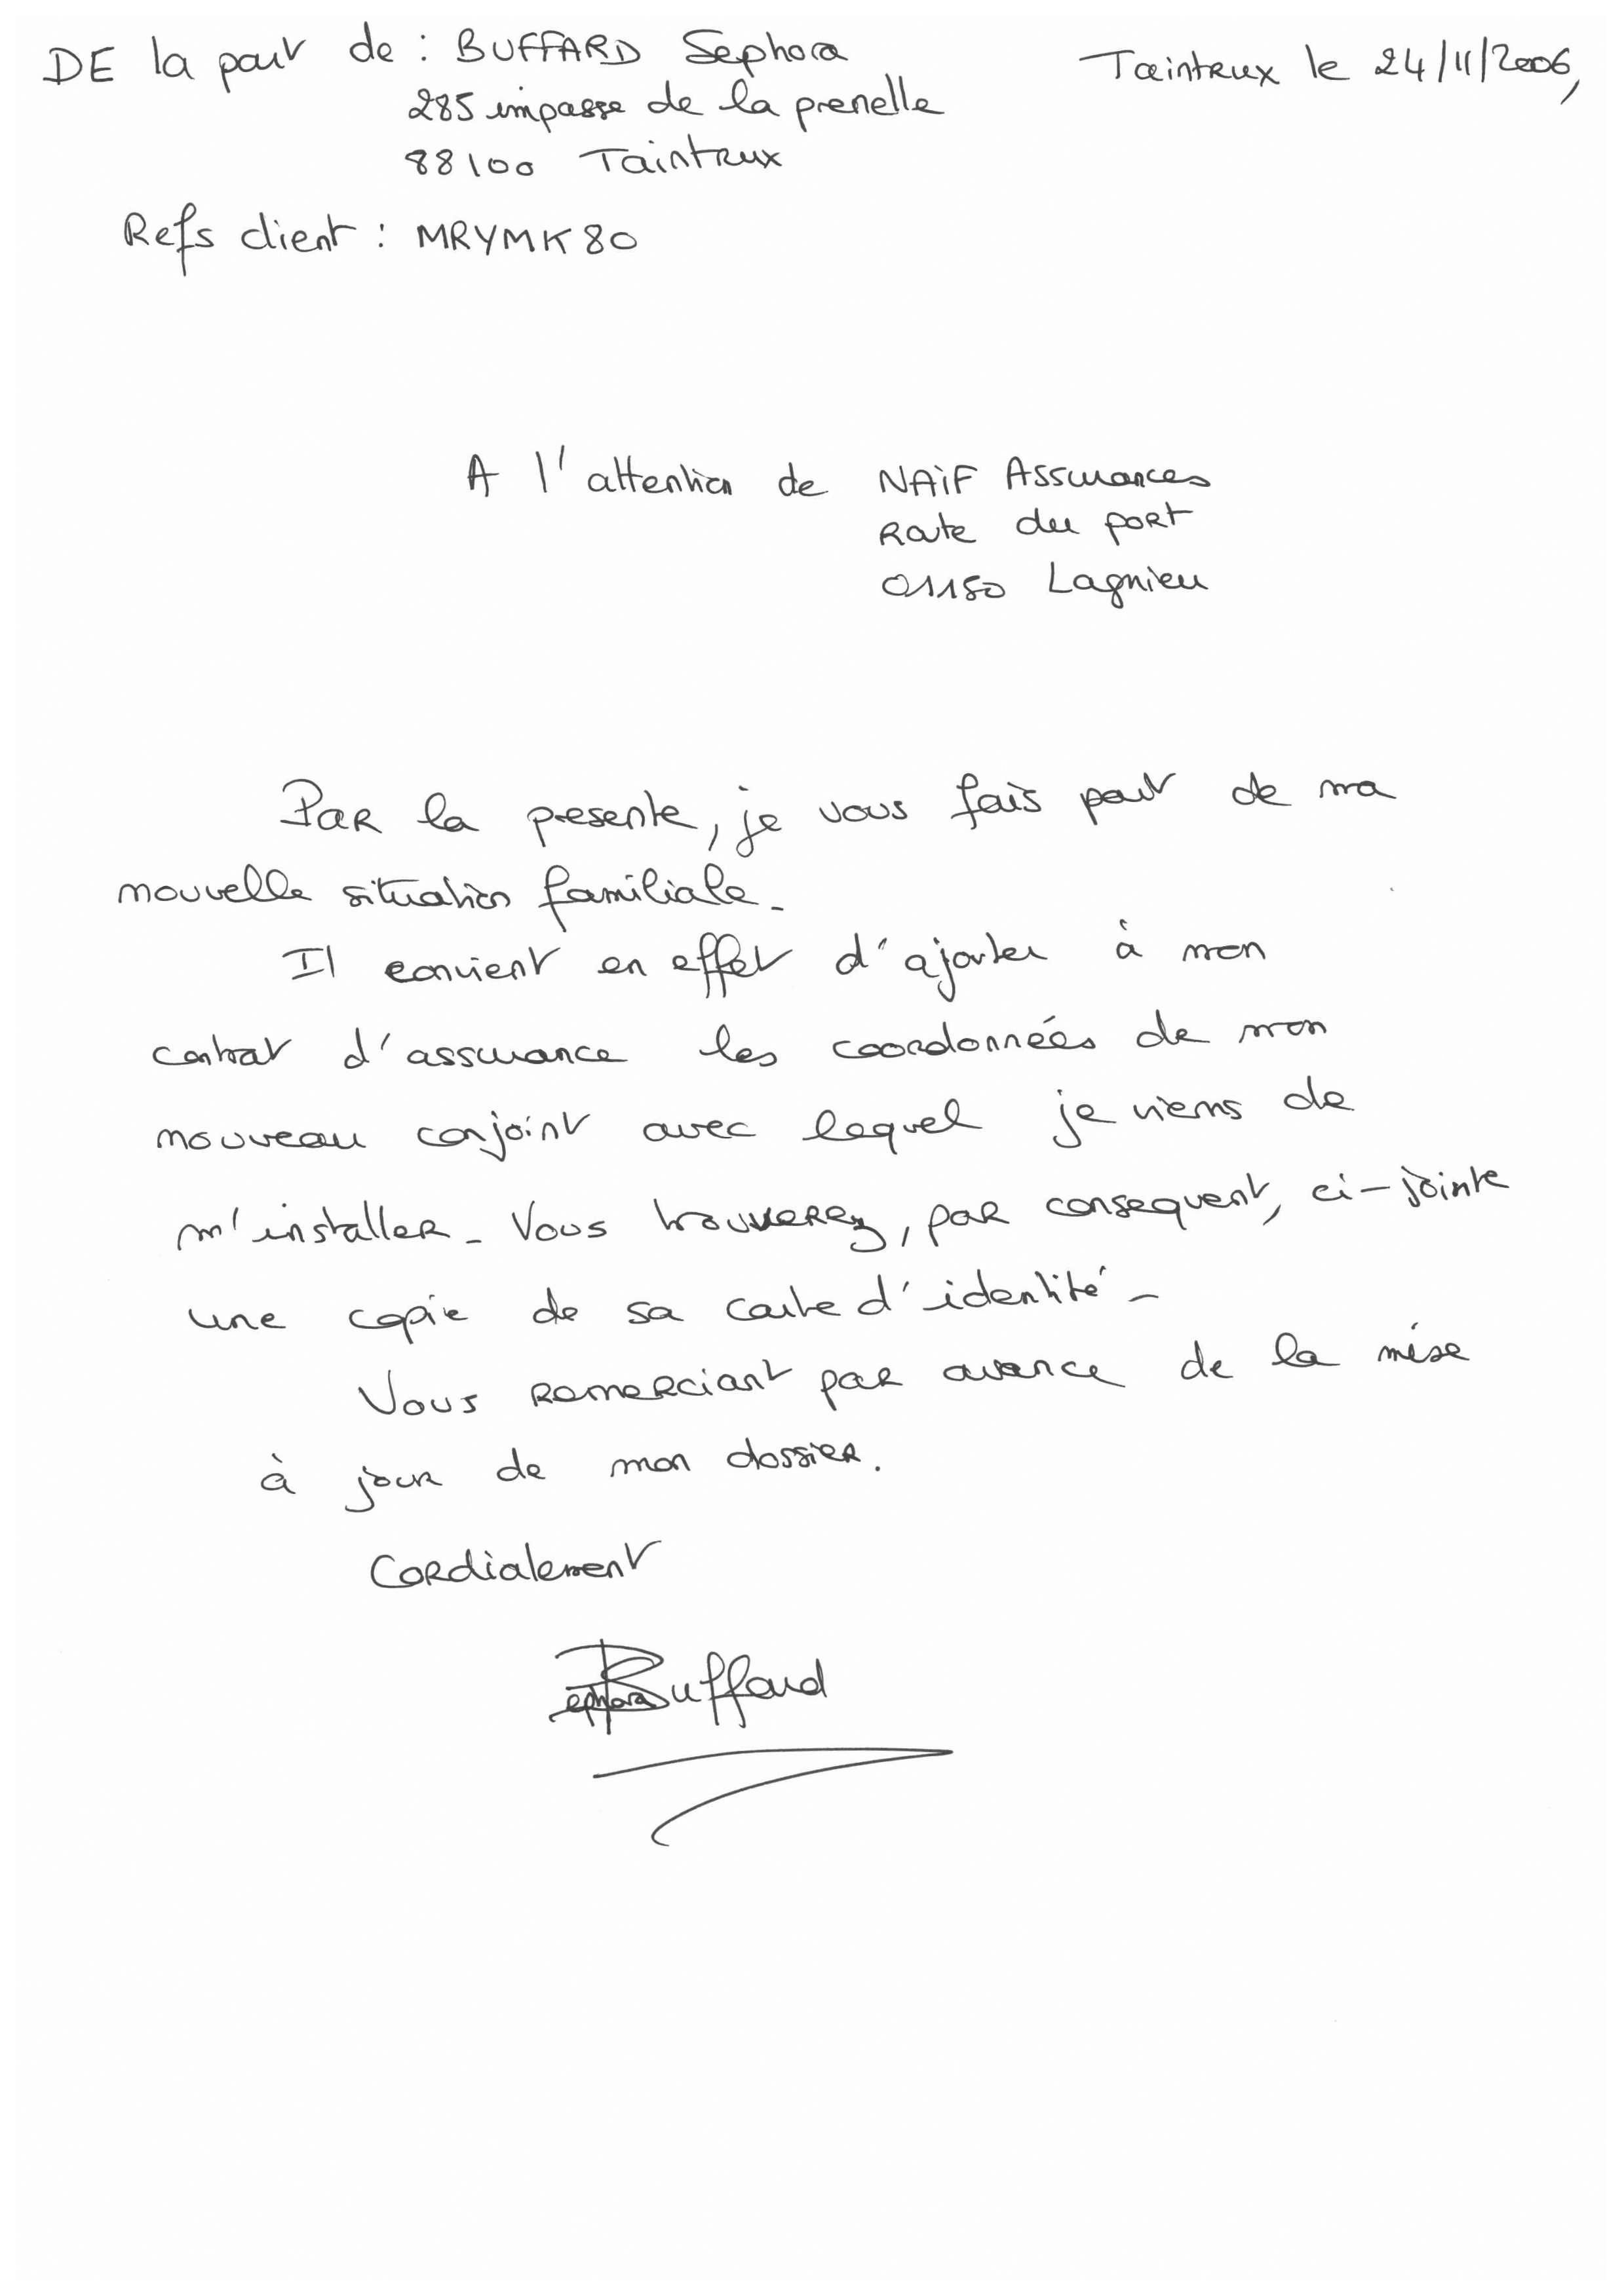 DE la part de : BUFFARD Sephora
Taintrux le 24/11/2006,
285 impasse de la prenelle
88100 Taintrux
Refs client : MRYMK80
A l'attention de NAiF Assurances
Route du port
01150 Lagnieu
Par la presente, je vous fais part de ma
nouvelle situation familiale_
Il convient en effet d'ajouter à mon
contrat d'assurance les coordonnées de mon
nouveau conjoint avec lequel je viens de
m'installer_ Vous trouverez, par consequent, ci-jointe
une copie de sa carte d'identité_
Vous remerciant par avance de la mise
à jour de mon dossier.
Cordialement
Sephora Buffard